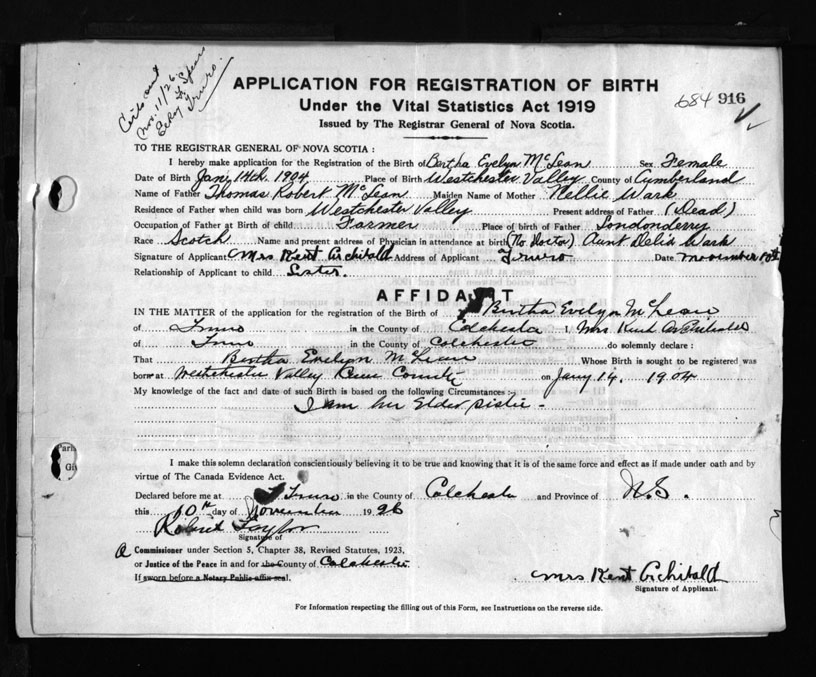 Nov. 11/26
Truro.
APPLICATION FOR REGISTRATION OF BIRTH
684 916
Under the Vital Statistics Act 1919
Issued by The Registrar General of Nova Scotia.
TO THE REGISTRAR GENERAL OF NOVA SCOTIA :
I hereby make application for the Registration of the Birth of Bertha Evelyn McLean Sex Female
Date of Birth Jany 14th. 1904 Place of Birth Westchester Valley County of Cumberland
Name of Father Thomas Robert McLean Maiden Name of Mother Nellie Wark
Residence of Father when child was born Westchester Valley Present address of Father (Dead)
Occupation of Father at Birth of child Farmer Place of birth of Father Londonderry
Race Scotch Name and present address of Physician in attendance at birth (No Doctor) Aunt Delia Wark
Signature of Applicant Mrs Kent Archibald Address of Applicant Truro Date November 10th
Relationship of Applicant to child Sister.
AFFIDAVIT
IN THE MATTER of the application for the registration of the Birth of Bertha Evelyn McLean
of Truro in the County of Colchester I, Mrs Kent Archibald
of Truro in the County of Colchester do solemnly declare :
That Bertha Evelyn McLean Whose Birth is sought to be registered was
born at Westchester Valley County on Jany 14. 1904
My knowledge of the fact and date of such Birth is based on the following Circumstances :-
I am her Elder sister -
I make this solemn declaration conscientiously believing it to be true and knowing that it is of the same force and effect as if made under oath and by
virtue of The Canada Evidence Act.
Declared before me at Truro in the County of Colchester and Province of N.S.
this 10th day of November 1926
Robert Taylor
Signature of
a Commissioner under Section 5, Chapter 38, Revised Statutes, 1923,
or Justice of the Peace in and for the County of Colchester
If sworn before a Notary Public affix seal.
Mrs Kent Archibald
Signature of Applicant.
For Information respecting the filling out of this Form, see Instructions on the reverse side.